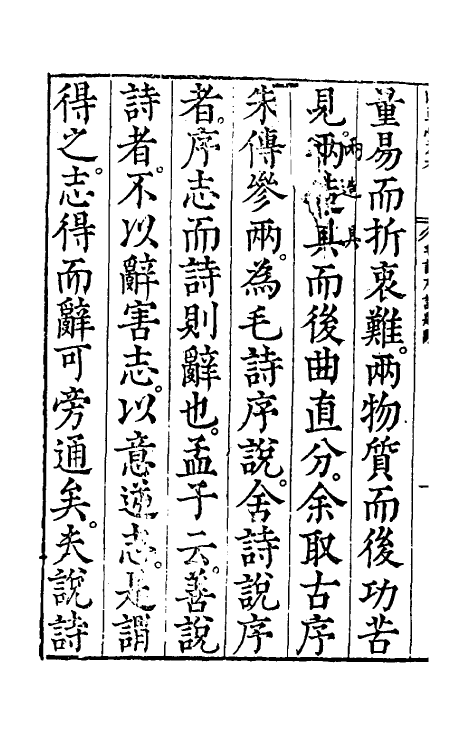 量易而折衷難。兩物質而後功苦
見。兩造具而後曲直分。余取古序
兩造具
朱傳參兩。為毛詩序說。舍詩說序
者。序志而詩則辭也。孟子云。善說
詩者。不以辭害志。以意逆志。是謂
得之。志得而辭可旁通矣。夫說詩